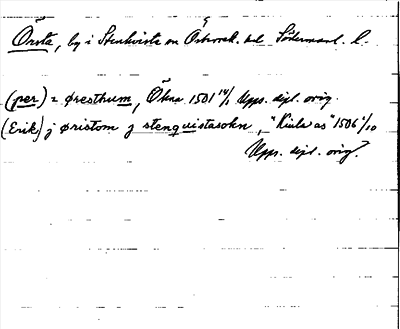 Örsta, by i Stenkvista sn Österrek. hd Södermanl. l.
(per) i øresthum, Ökna 1501 14/1 Upps. dipl. orig.
(Erik) j øristom j stenquistasokn, "Kiula as" 1506 1/10
Upps. dipl. orig.